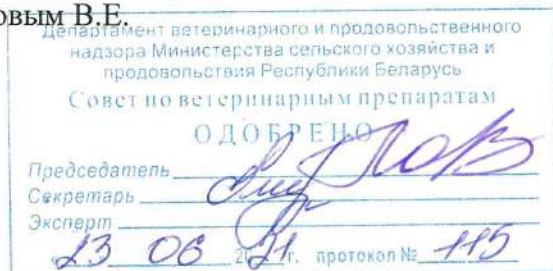 овым В.Е.
Департамент ветеринарного и продовольственного
надзора Министерства сельского хозяйства и
продовольствия Республики Беларусь
Совет по ветеринарным препаратам
ОДОБРЕНО
Председатель
Секретарь
Эксперт
23 06 2021г. протокол № 115